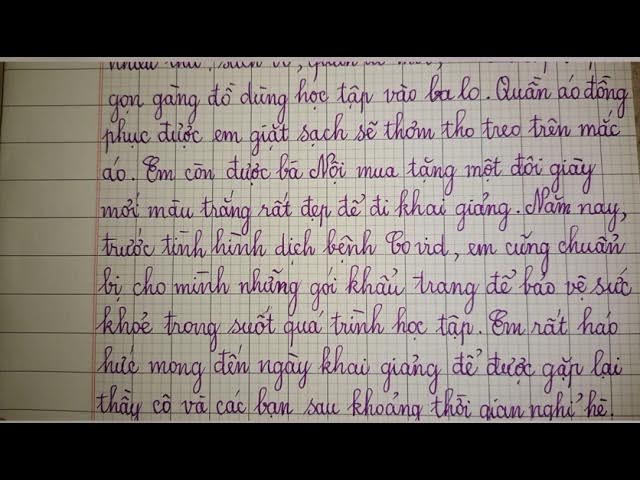 nhiều thứ: sách vở, quần áo mới,
gọn gàng đồ dùng học tập vào ba lo. Quần áo đồng
phục được em giặt sạch sẽ thơm tho treo trên mắc
áo. Em còn được bà Nội mua tặng một đôi giày
mới màu trắng rất đẹp để đi khai giảng. Năm nay,
trước tình hình dịch bệnh Covid, em cũng chuẩn
bị cho mình những gói khẩu trang để bảo vệ sức
khoẻ trong suốt quá trình học tập. Em rất háo
hức mong đến ngày khai giảng để được gặp lại
thầy cô và các bạn sau khoảng thời gian nghỉ hè.